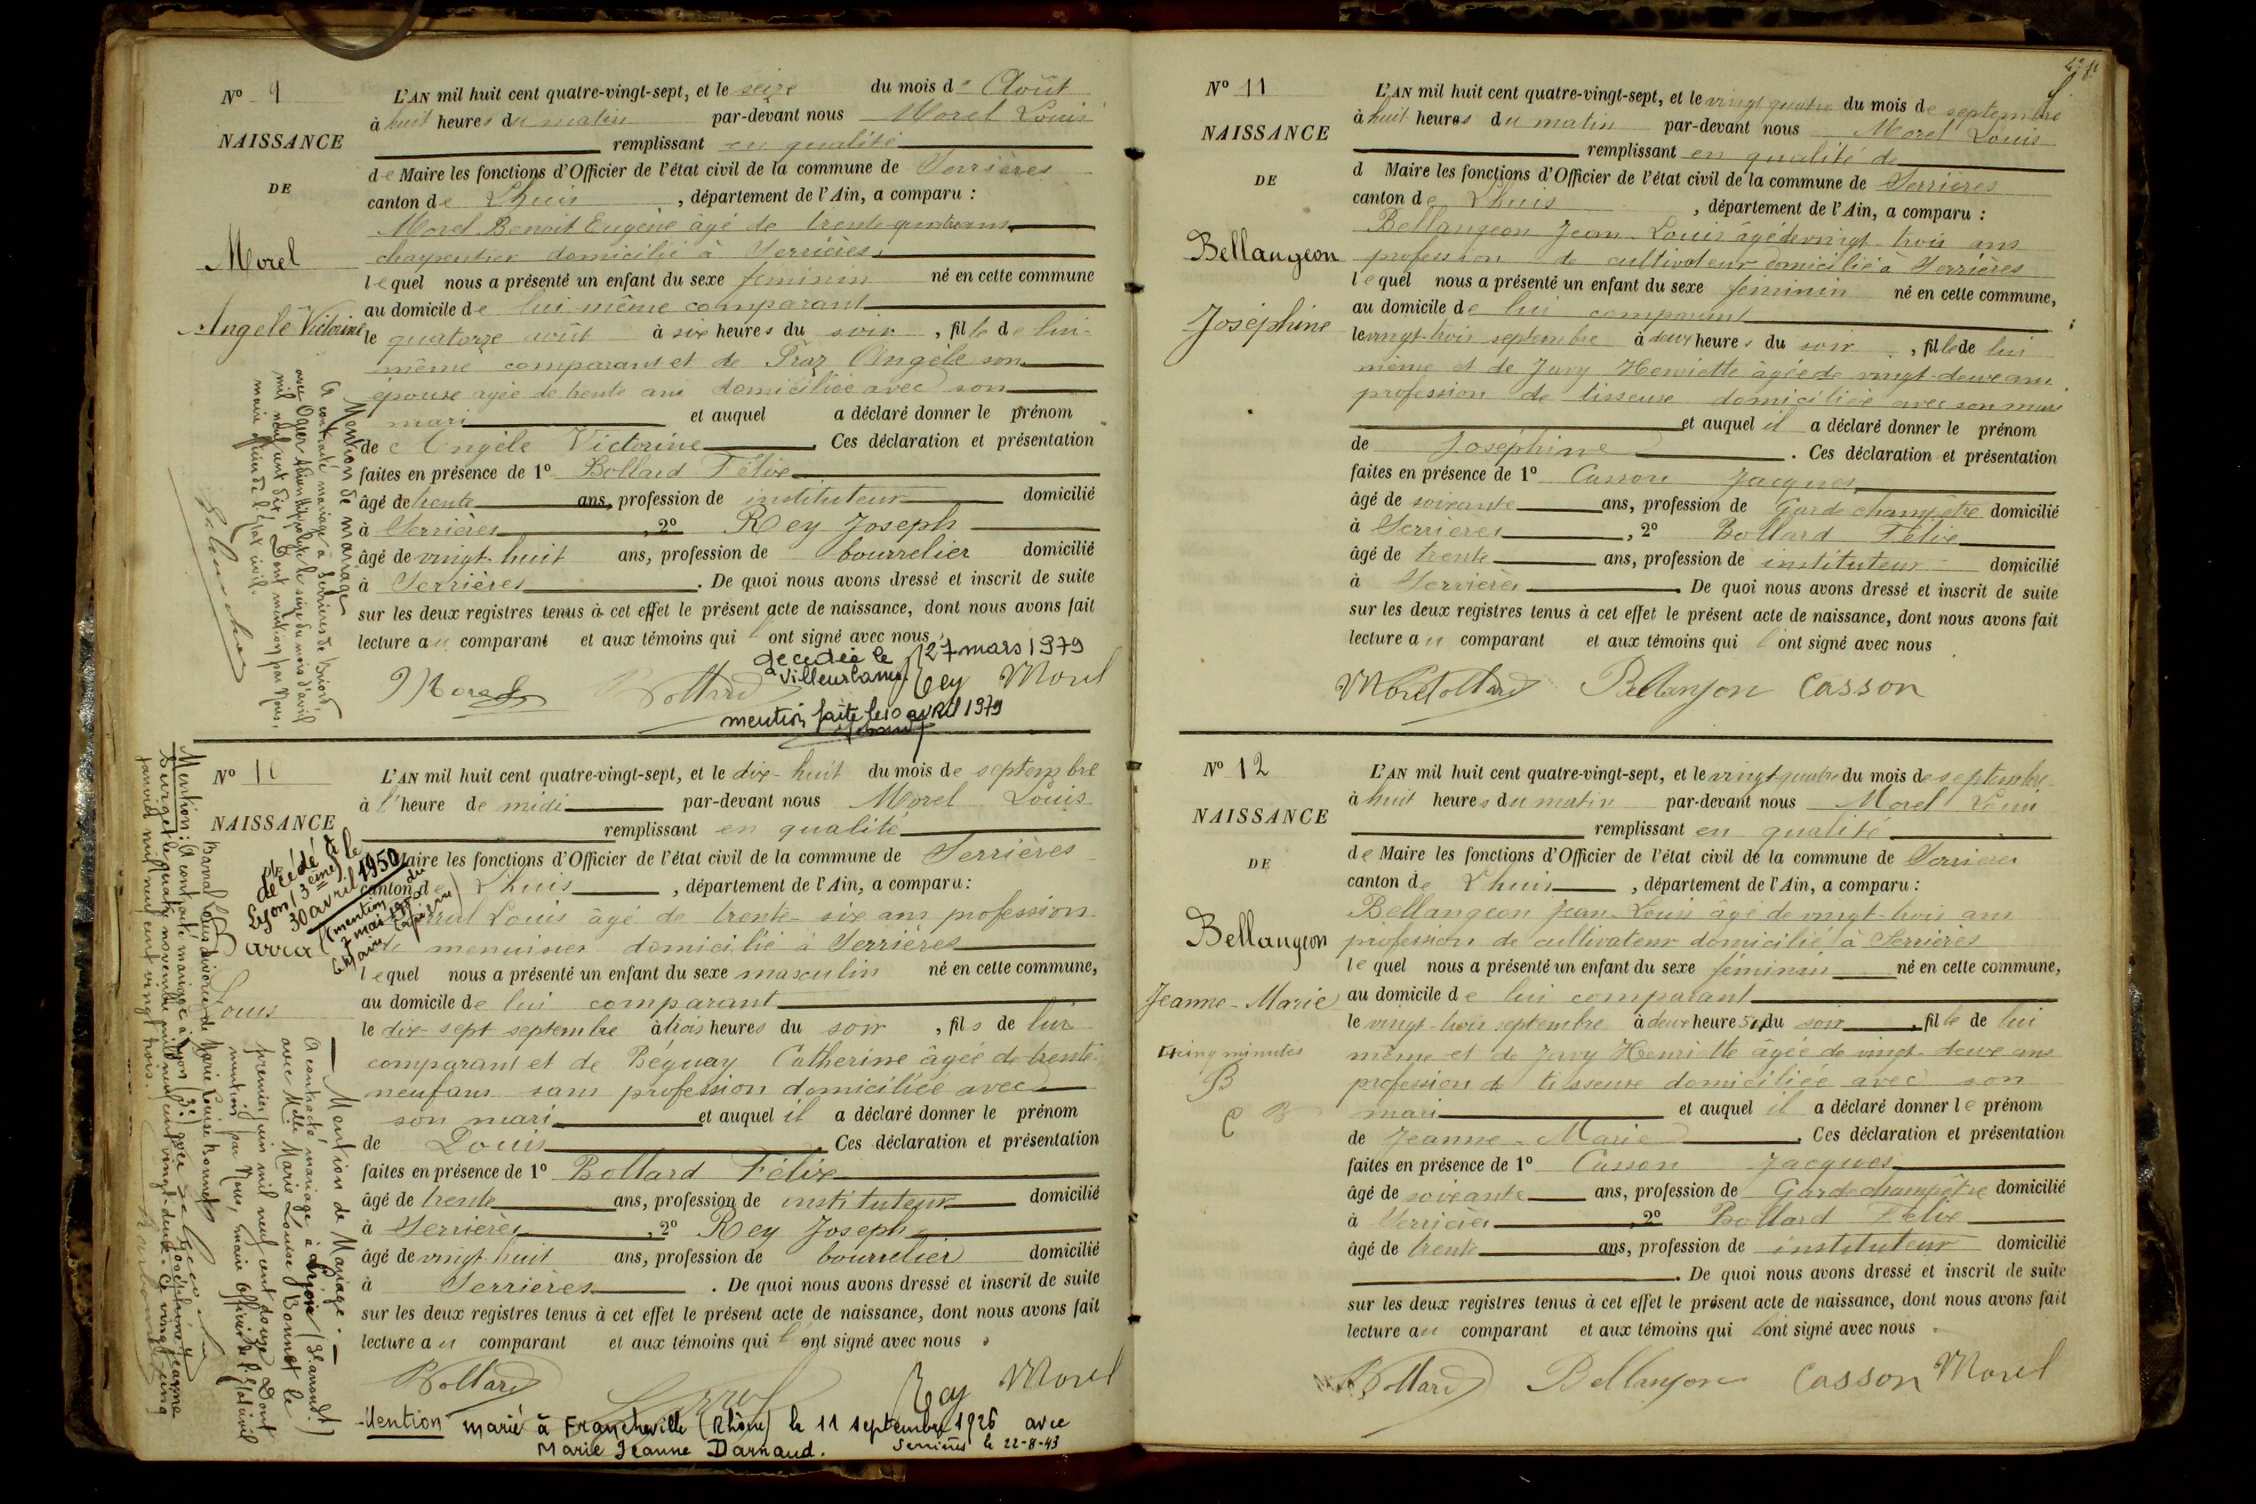 N° 9
NAISSANCE
DE
Morel
Angèle Victorine
L'AN mil huit cent quatre-vingt-sept, et le seize du mois d'Août
à huit heures du matin par-devant nous Morel Louis
remplissant en qualité
de Maire les fonctions d'Officier de l'état civil de la commune de Serrières
canton de Lhuis, département de l'Ain, a comparu :
Morel Benoit Eugène âgé de trente quatre ans
charpentier domicilié à Serrières
lequel nous a présenté un enfant du sexe féminin né en cette commune
au domicile de lui même comparant
le quatorze août à six heures du soir, fille de lui-
même comparant et de Praz Angèle son
épouse agée de trente ans domiciliée avec son
mari et auquel a déclaré donner le prénom
de Angèle Victorine. Ces déclaration et présentation
faites en présence de 1° Bollard Félix
âgé de trente ans, profession de instituteur domicilié
à Serrières, 2° Rey Joseph
âgé de vingt-huit ans, profession de bourrelier domicilié
à Serrières. De quoi nous avons dressé et inscrit de suite
sur les deux registres tenus à cet effet le présent acte de naissance, dont nous avons fait
lecture au comparant et aux témoins qui l'ont signé avec nous.
décédée le 27 mars 1979
à Villeurbanne
Morel Bollard Rey Morel
mention faite le 10 avril 1979
Mention de mariage
A contracté mariage à Serrières de Briord,
avec Ogier Hippolyte le seize du mois d'avril
mil neuf cent dix. Dont mention par Nous,
maire officier de l'état civil.
N° 10
NAISSANCE
décédé à
Lyon (3ème) le
30 avril 1950
(mention du
7 mai 1950
Barral
Louis
L'AN mil huit cent quatre-vingt-sept, et le dix-huit du mois de septembre
à l'heure de midi par-devant nous Morel Louis
remplissant en qualité
Maire les fonctions d'Officier de l'état civil de la commune de Serrières
canton de Lhuis, département de l'Ain, a comparu :
Barral Louis âgé de trente-six ans profession
de menuisier domicilié à Serrières
lequel nous a présenté un enfant du sexe masculin né en cette commune,
au domicile de lui comparant
le dix-sept septembre à trois heures du soir, fils de lui
comparant et de Béguay Catherine âgée de trente
neuf ans sans profession domiciliée avec
son mari et auquel il a déclaré donner le prénom
de Louis. Ces déclaration et présentation
faites en présence de 1° Bollard Félix
âgé de trente ans, profession de instituteur domicilié
à Serrières, 2° Rey Joseph
âgé de vingt huit ans, profession de bourrelier domicilié
à Serrières. De quoi nous avons dressé et inscrit de suite
sur les deux registres tenus à cet effet le présent acte de naissance, dont nous avons fait
lecture au comparant et aux témoins qui l'ont signé avec nous.
Bollard Barral Rey Morel
Mention marié à Francheville (Rhône) le 11 septembre 1926 avec
Marie Jeanne Darnaud. Serrières le 22-8-43
Mention de Mariage.
A contracté mariage à Lyon (3e arrondt)
avec Melle Marie Louise Bonnet le
premier juin mil neuf cent douze Dont
mention par Nous, maire officier de l'état civil
Mention: A contracté mariage à Lyon (3e) avec Joséphine Jeanne
Burget le quatre novembre mil neuf cent vingt-deux. Ce vingt-cinq
janvier mil neuf cent vingt trois.
Barral Louis divorcé de Marie Louise Bonnet
N° 11
NAISSANCE
DE
Bellangeon
Joséphine
L'AN mil huit cent quatre-vingt-sept, et le vingt quatre du mois de septembre
à huit heures du matin par-devant nous Morel Louis
remplissant en qualité de
d Maire les fonctions d'Officier de l'état civil de la commune de Serrières
canton de Lhuis, département de l'Ain, a comparu :
Bellangeon Jean-Louis âgé de vingt-trois ans
profession de cultivateur domicilié à Serrières
lequel nous a présenté un enfant du sexe féminin né en cette commune,
au domicile de lui comparant
le vingt-trois septembre à deux heures du soir, fille de lui
même et de Juvy Henriette âgée de vingt-deux ans
profession de tisseuse domiciliée avec son mari
et auquel il a déclaré donner le prénom
de Joséphine. Ces déclaration et présentation
faites en présence de 1° Casson Jacques
âgé de soixante ans, profession de Garde champêtre domicilié
à Serrières, 2° Bollard Félix
âgé de trente ans, profession de instituteur domicilié
à Serrières. De quoi nous avons dressé et inscrit de suite
sur les deux registres tenus à cet effet le présent acte de naissance, dont nous avons fait
lecture au comparant et aux témoins qui l'ont signé avec nous
Morel Bollard Bellanjon Casson
N° 12
NAISSANCE
DE
Bellangeon
Jeanne-Marie
cinq minutes
B
C B
L'AN mil huit cent quatre-vingt-sept, et le vingt-quatre du mois de septembre
à huit heures du matin par-devant nous Morel Louis
remplissant en qualité
de Maire les fonctions d'Officier de l'état civil de la commune de Serrières
canton de Lhuis, département de l'Ain, a comparu :
Bellangeon Jean-Louis âgé de vingt-trois ans
profession de cultivateur domicilié à Serrières
lequel nous a présenté un enfant du sexe féminin né en cette commune,
au domicile de lui comparant
le vingt-trois septembre à deux heures du soir, fille de lui
même et de Juvy Henriette âgée de vingt-deux ans
profession de tisseuse domiciliée avec son
mari et auquel il a déclaré donner le prénom
de Jeanne-Marie. Ces déclaration et présentation
faites en présence de 1° Casson Jacques
âgé de soixante ans, profession de Garde champêtre domicilié
à Serrières, 2° Bollard Félix
âgé de trente ans, profession de instituteur domicilié
. De quoi nous avons dressé et inscrit de suite
sur les deux registres tenus à cet effet le présent acte de naissance, dont nous avons fait
lecture au comparant et aux témoins qui l'ont signé avec nous.
Bollard Bellanjon Casson Morel